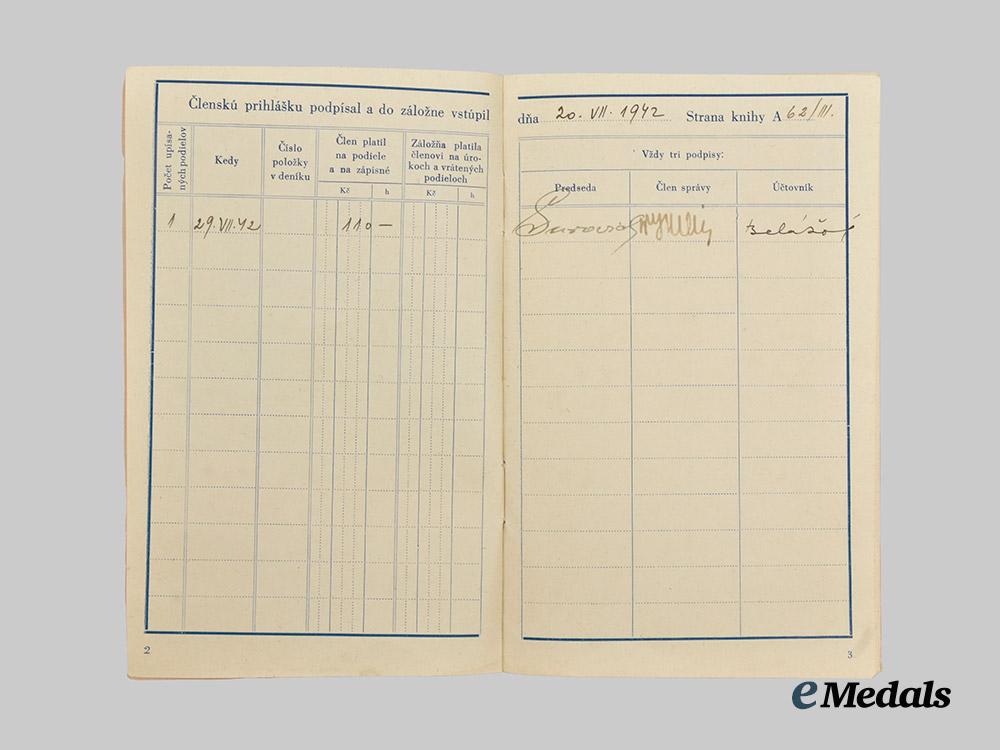 Členskú prihlášku podpísal a do záložne vstúpil
Počet upísa-
ných podielov
Kedy
Číslo
položky
v deníku
Člen platil
na podiele
a na zápisné
Kč h
Záložňa platila
členovi na úro-
koch a vrátených
podieloch
Kč h
1 29.VII.42 110 —
2
dňa 20. VII. 1942 Strana knihy A 62/III.
Vždy tri podpisy:
Predseda Člen správy Účtovník
3
eMedals